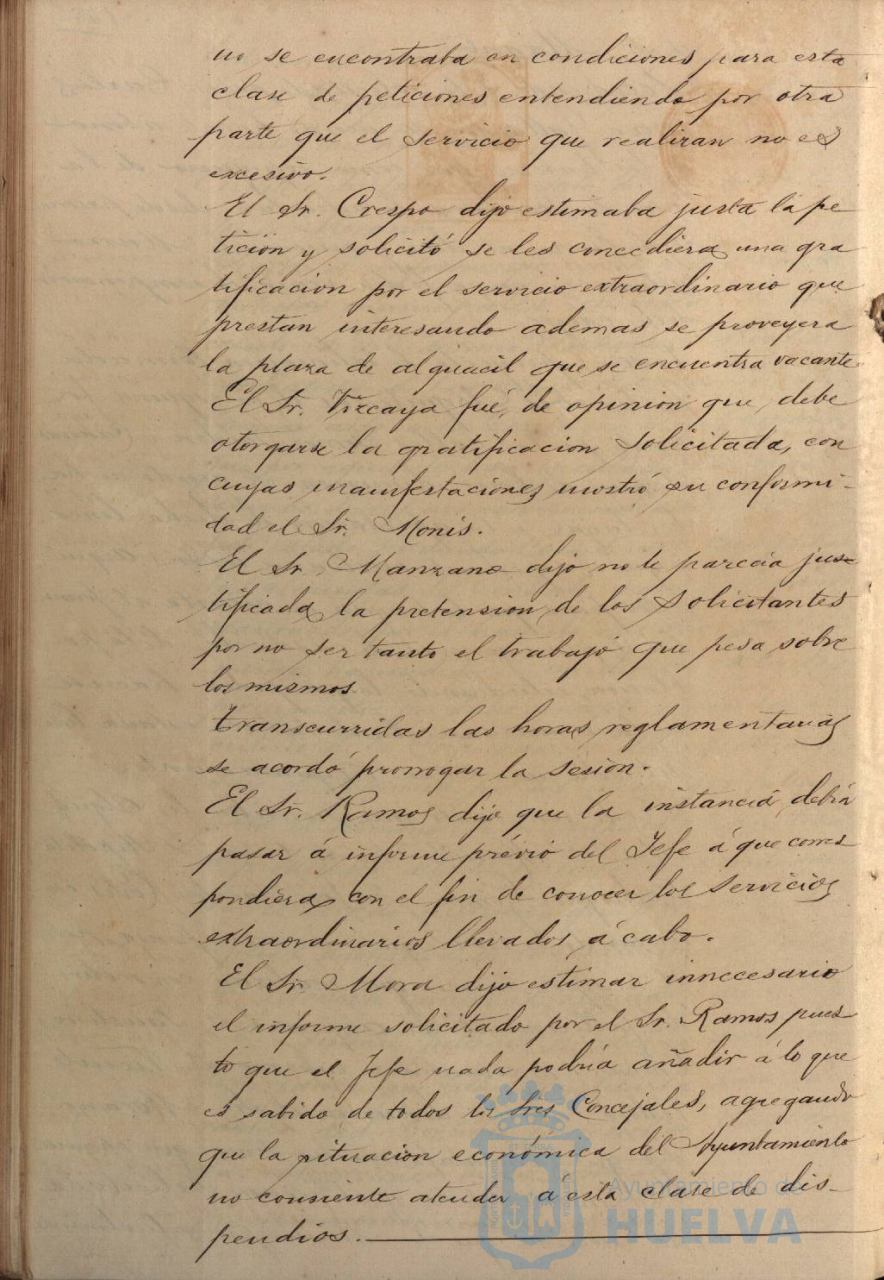 no se encontraba en condiciones para esta
clase de peticiones entendiendo por otra
parte que el servicio que realizan no es
excesivo.
El Sr. Crespo dijo estimaba justa la pe
tición y solicitó se les concediera una gra
tificacion por el servicio extraordinario que
prestan interesando ademas se proveyera
la plaza de alguacil que se encuentra vacante
El Sr. Vizcaya fué de opinion que debe
otorgarse la gratificacion solicitada, con
cuyas manifestaciones mostró su conformi-
dad el Sr. Monis.
El Sr Manzano dijo no le parecia jus-
tificada la pretension de los solicitantes
por no ser tanto el trabajó que pesa sobre
los mismos
transcurridas las horas reglamentarias
se acordó prorrogar la sesion.
El Sr. Ramos dijo que la instancia debia
pasar á informe prévio del Jefe á que corres
pondiera con el fin de conocer los servicios
extraordinarios llevados á cabo.
El Sr. Mora dijo estimar innecesario
el informe solicitado por el Sr. Ramos pues
to que el Jefe nada podría añadir á lo que
es sabido de todos los Sres Concejales, agregando
que la situacion económica del Ayuntamiento
no consiente atender á esta clase de dis-
pendios.
Ayuntamiento de
HUELVA